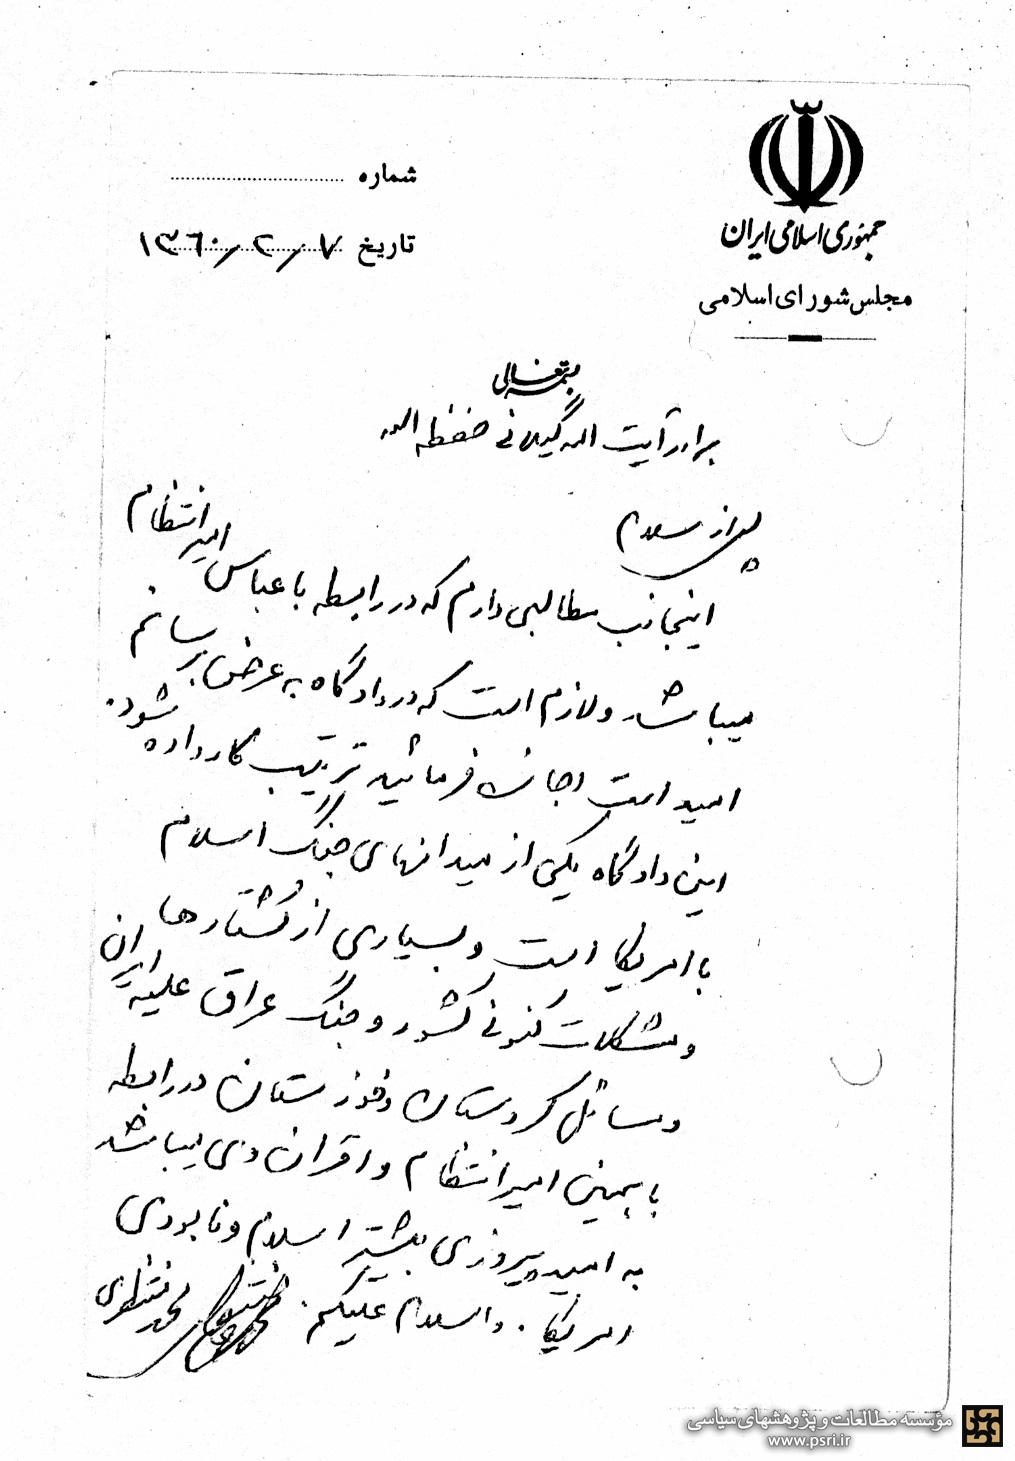 جمهوری اسلامی ایران
مجلس شورای اسلامی
شماره
تاریخ ۱۳۶۰/۲/۷
بسمه تعالی
برادر آیت الله گیلانی حفظه الله
پس از سلام
اینجانب مطالبی دارم که در رابطه با عباس امیرانتظام
میباشد و لازم است که در دادگاه به عرض برسانم
امید است اجازه فرمائید ترتیب کار داده شود.
این دادگاه یکی از میدانهای جنگ اسلام
با امریکا است و بسیاری از کُشتارها
و مشکلات کنونی کشور و جنگ عراق علیه ایران
و مسائل کردستان و خوزستان در رابطه
با همین امیرانتظام و اقران وی میباشد
به امید پیروزی بیشتر اسلام و نابودی
امریکا. والسلام علیکم.
محمد منتظری
مؤسسه مطالعات و پژوهشهای سیاسی
www.psri.ir